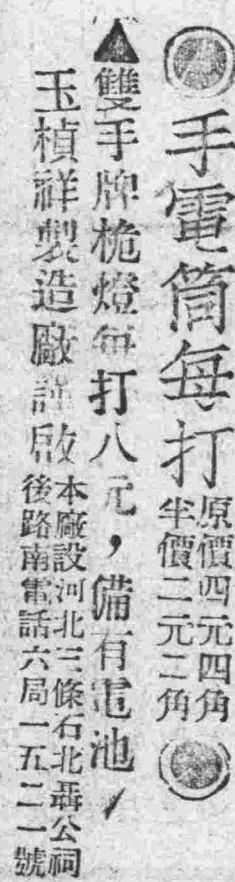 手電筒每打
原價四元四角
半價二元二角
▲雙手牌桅燈每打八元，備有電池
玉楨祥製造廠謹啟
本廠設河北三條石北聶公祠
後路南電話六局一五二一號